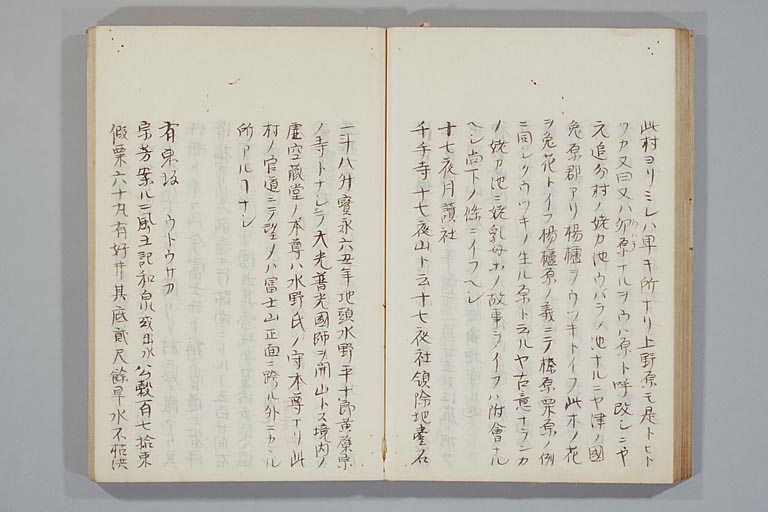 此村ヨリミレハ早キ所ナリ上野原モ是トヒト
ツカ又曰又ハ卯原ナルヲウハ原ト呼改シニヤ
元追分村ノ姥カ池ウバラノ池ナルニヤ津ノ國
兔原郡アリ楊櫨ヲウツキトイフ此木ノ花
ヲ兔花トイフ楊櫨原ノ義ニテ榛原栗原ノ例
ニ同シクウツキノ生ル原ト云ルヤ古意ナランカ
ノ姥カ池ニ姥乳母ホノ故事ヲイフハ附會ナル
ヘシ尚下ノ條ニイフヘシ
十七夜月讀社
千手寺十七夜山ト云十七夜社領除地壹石
二斗八升寳永六丑年地頭水野平十郎黄檗宗
ノ寺トナシテ大光普光國師ヲ開山トス境内ノ
虚空蔵堂ノ本尊ハ水野氏ノ守本尊ナリ此
村ノ官道ニテ望ノハ冨士山正面ニ跨ル外ニカヽル
所アルヿナシ
有東坂 ウトウサカ
宗芳案ルニ風土記和泉或出水公穀百七拾束
假粟六十丸有好井其底貳尺餘旱水不涸洪